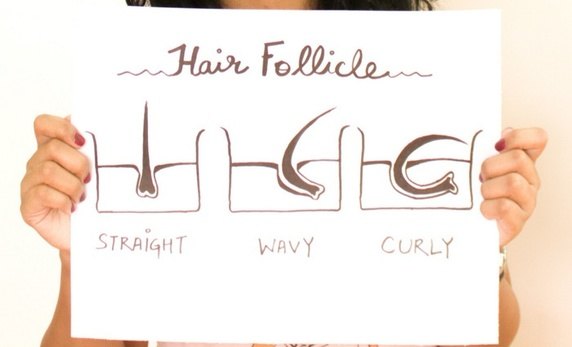 Hair Follicle
STRAIGHT WAVY CURLY